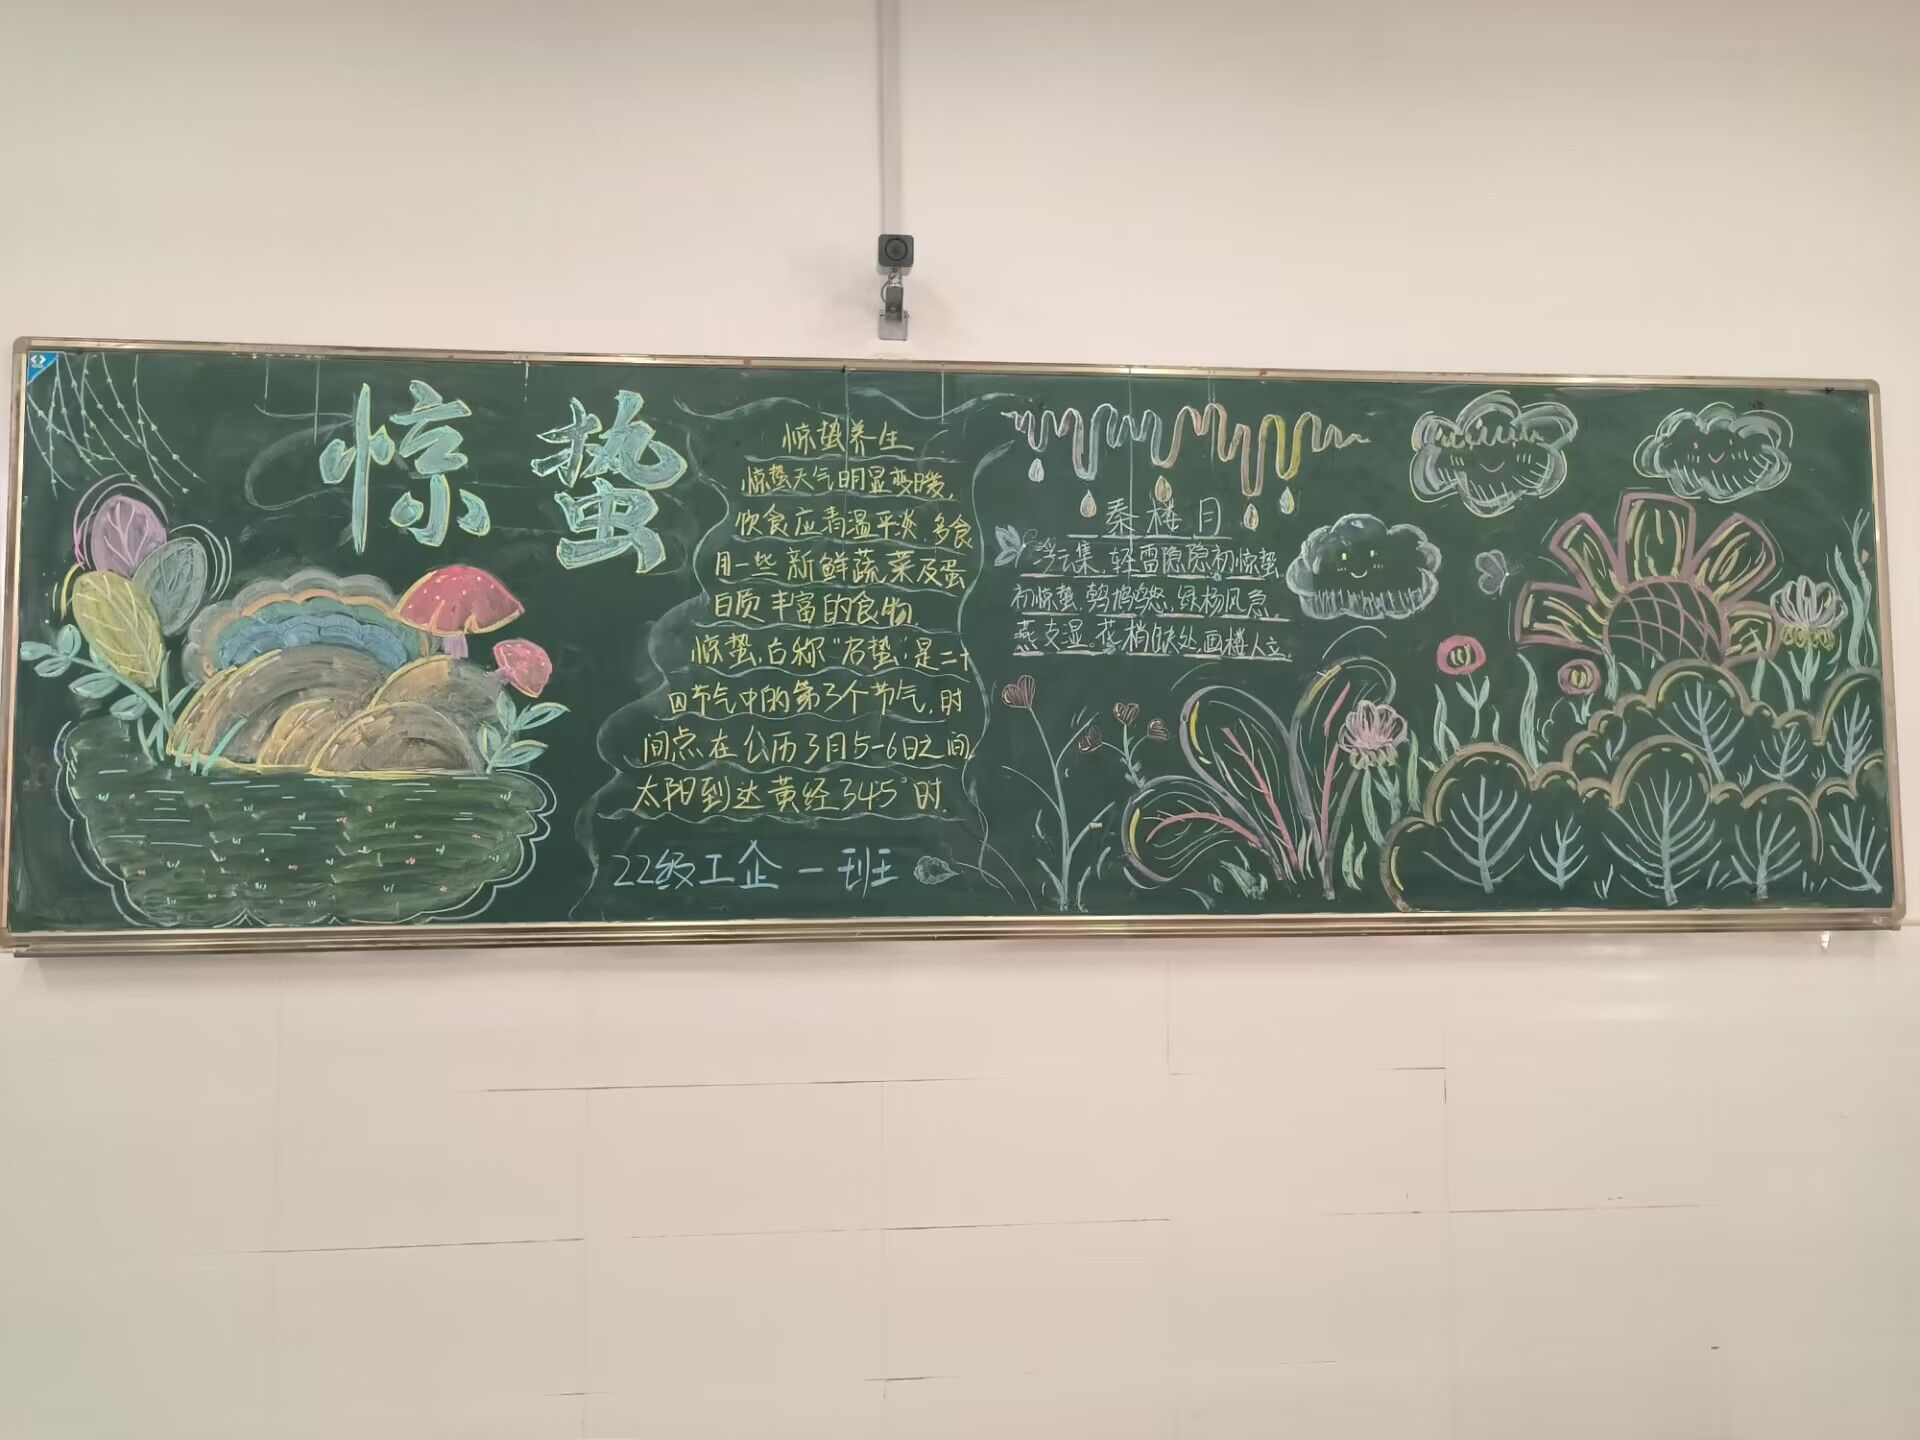 惊蛰
惊蛰养生
惊蛰天气明显变暖,
饮食应清温平淡,多食
用一些新鲜蔬菜及蛋
白质丰富的食物.
惊蛰,古称“启蛰”,是二十
四节气中的第3个节气,时
间点在公历3月5-6日之间,
太阳到达黄经345°时.
22级工企一班
秦楼月
浮云集,轻雷隐隐初惊蛰
初惊蛰,鹁鸠鸣怒,绿杨风急.
燕支湿。花梢缺处,画楼人立.